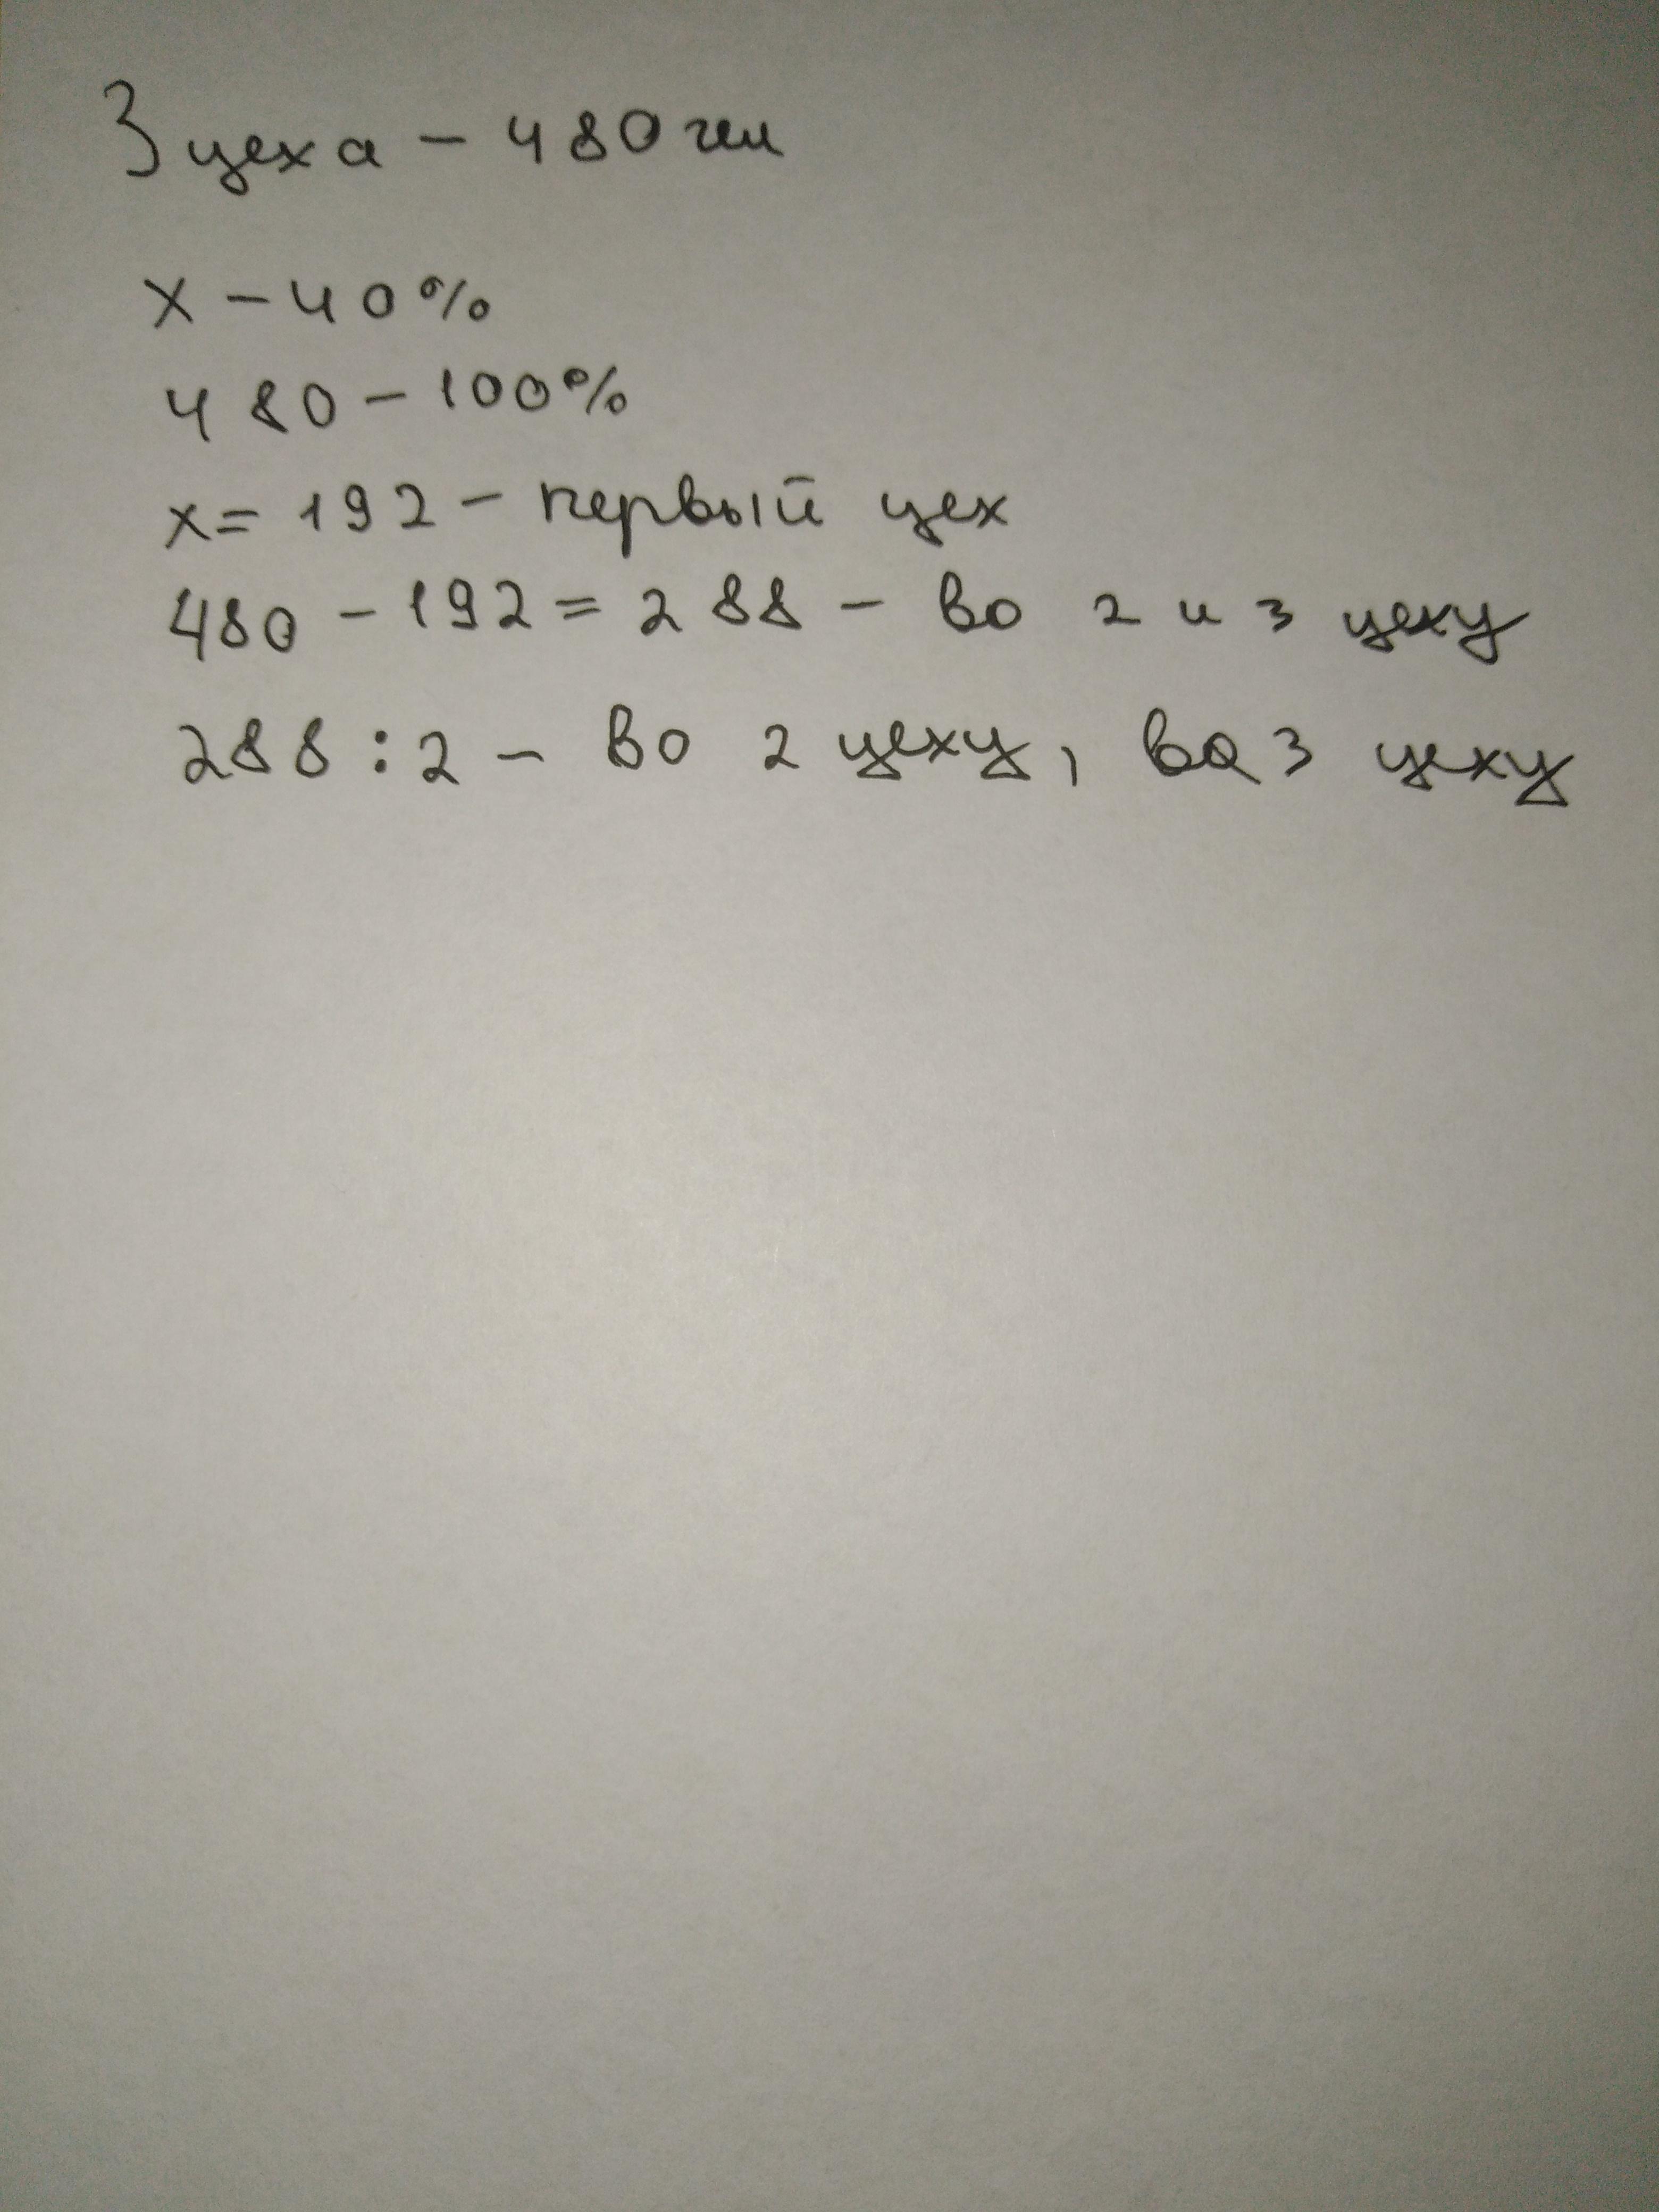 3 цеха - 480 чел
x - 40%
480 - 100%
x = 192 - первый цех
480 - 192 = 288 - во 2 и 3 цеху
288 : 2 - во 2 цеху, во 3 цеху